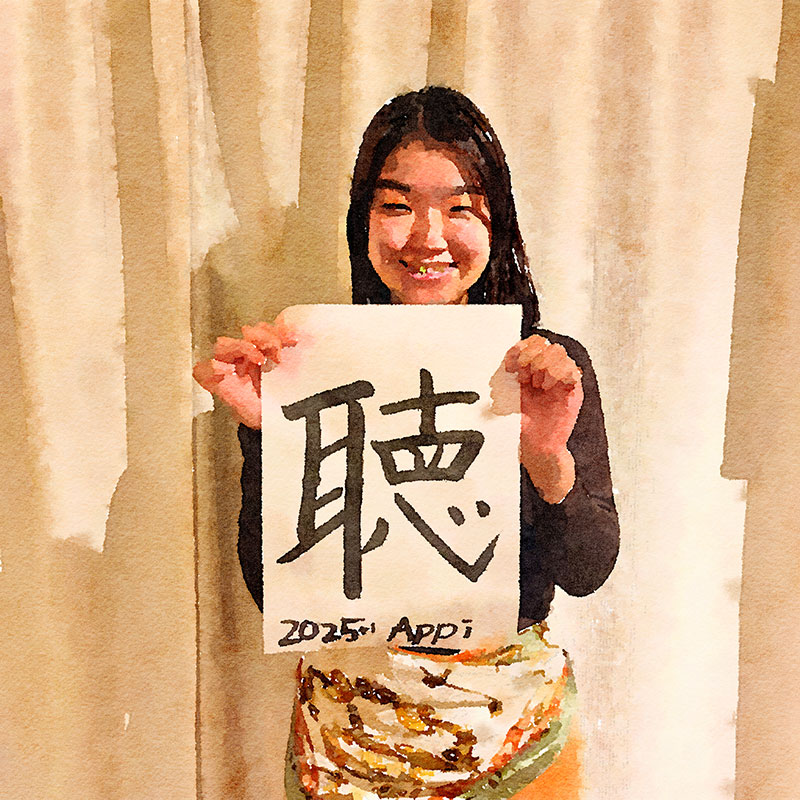 聴
2025 Appi